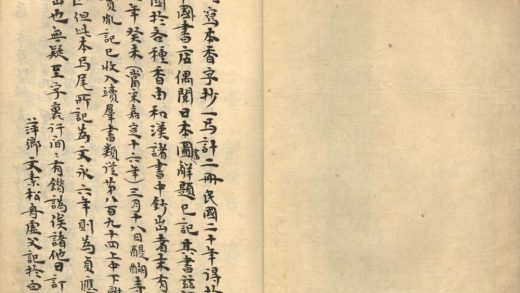 寫本香字抄一馬計二冊民國二十年得於
中國書店偶閱日本圖解題已記其書茲
關於各種香由和漢諸書中鈔出者末有
年癸未(當宋嘉定十六年)三月十八日醍醐寺
貞胤記已收入續群書類從第八百九十四上中下
但此本馬尾所記為文永六年則為貞應
也無疑至字裏行間間有錯譌俟諸他日訂
萍鄉文素松舟虛父記於白